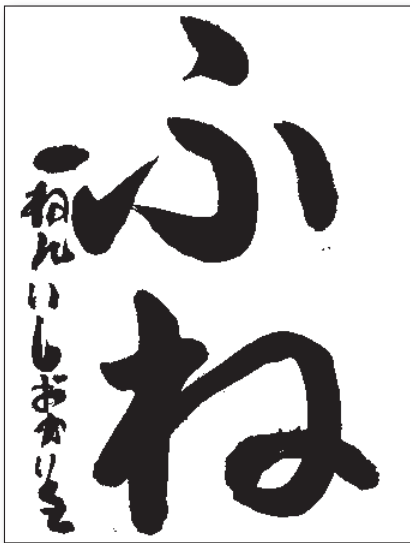 ふね
一ねんいしおかりえ